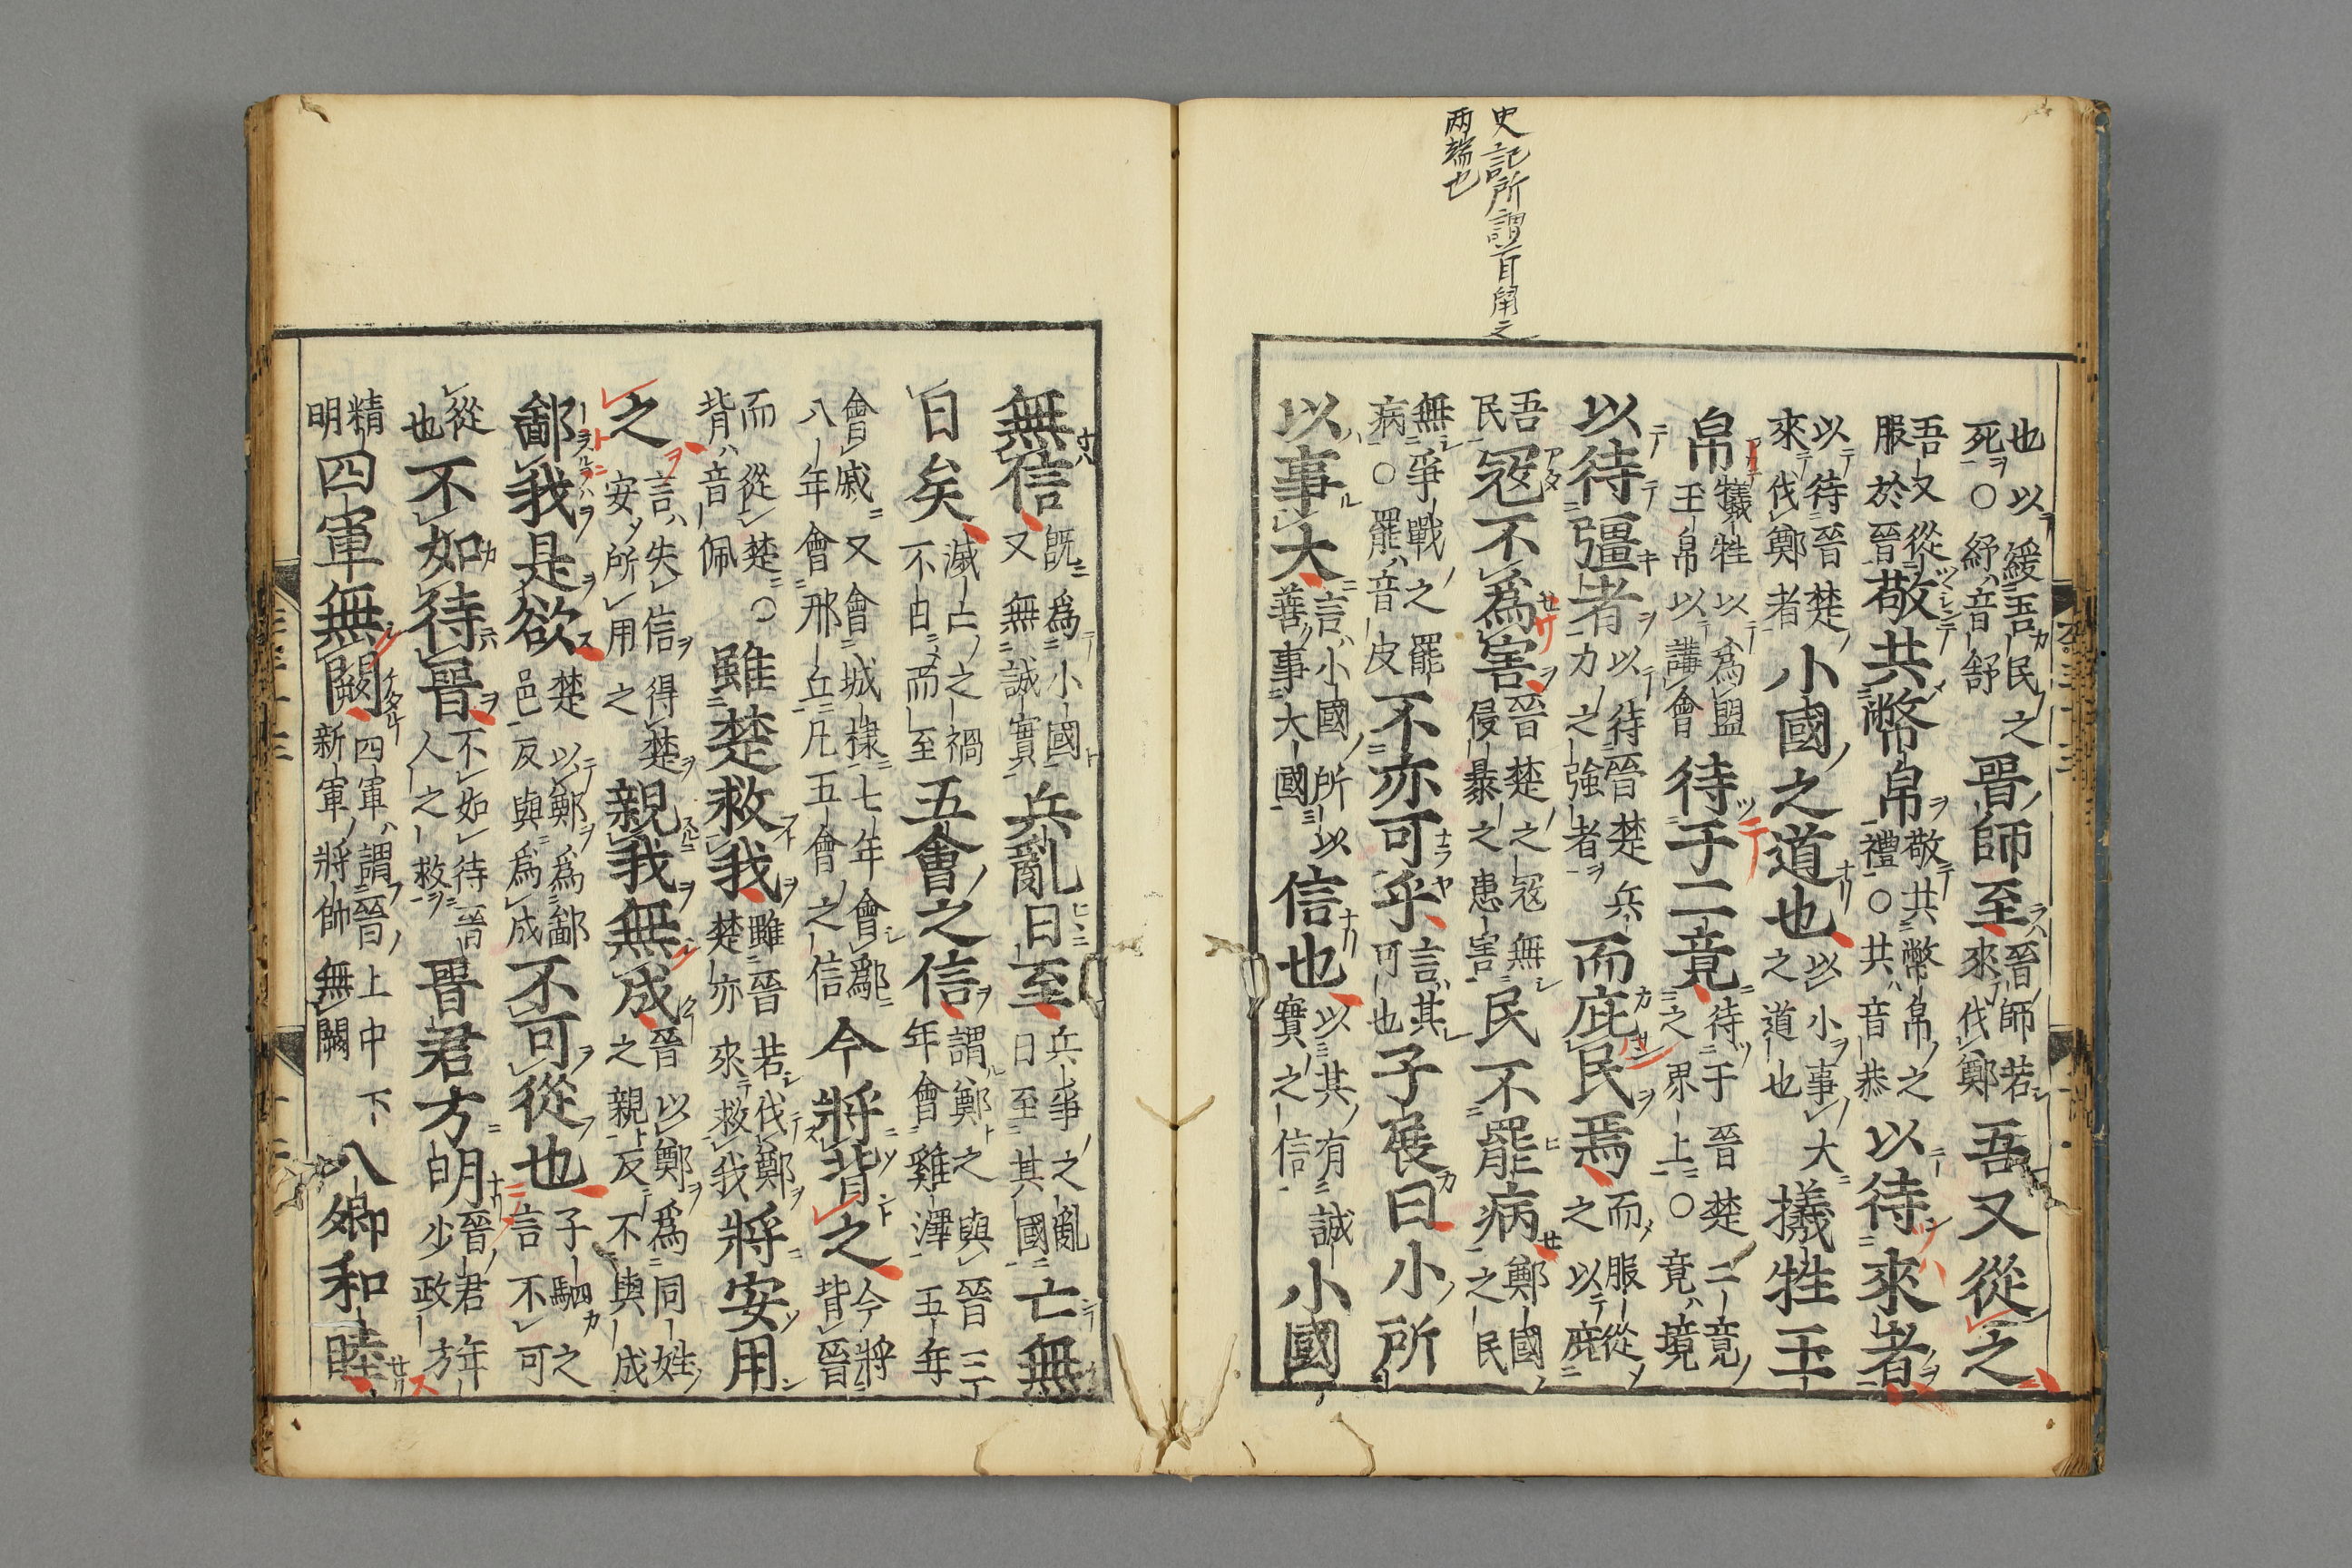 史記所謂首鼡之
両端也
也以緩吾民之死○紓音舒晉師至晉師若來伐鄭吾又從之
吾又從服於晉敬共幣帛敬共幣帛之禮○共音恭以待來者
以待晉楚來伐鄭者小國之道也以小事大之道也犧牲玉
帛犧牲以爲盟玉帛以講會待于二竟待于晉楚二竟之界上○竟音境
以待彊者以待晉楚兵力之強者而庇民焉而服從之以庇
吾民寇不爲害晉楚之寇無侵暴之患害民不罷病鄭國之民
無爭戰之罷病○罷音皮不亦可乎言其可也子展曰小所
以事大言小國所以善事大國信也以其有誠實之信小國
無信既爲小國又無誠實兵亂日至兵爭之亂日至其國亡無
日矣滅亡之禍不日而至五會之信謂鄭之與晉三年會雞澤五年
會戚又會城棣七年會鄬八年會邢丘凡五會之信今將背之今將背晉
而從楚○背音佩雖楚救我雖晉若伐鄭楚亦來救我將安用
之言失信得楚安所用之親我無成晉以鄭爲同姓之親反不與成
鄙我是欲楚以鄭爲鄙邑反與爲成不可從也子駟之言不可
從也不如待晉不如待晉人之救晉君方明晉君年少政方
精明四軍無闕四軍謂晉上中下新軍將帥無闕八卿和睦